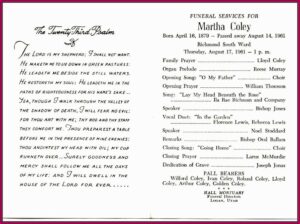 The Twenty Third Psalm
The Lord is my shepherd; I shall not want.
He maketh me to lie down in green pastures.
He leadeth me beside the still waters.
He restoreth my soul: He leadeth me in the
paths of righteousness for his name's sake.
Yea, though I walk through the valley of
the shadow of death, I will fear no evil;
for thou art with me; thy rod and thy staff
they comfort me. Thou preparest a table
before me in the presence of mine enemies:
thou anointest my head with oil; my cup
runneth over. Surely goodness and
mercy shall follow me all the days
of my life: and I will dwell in the
house of the Lord for ever
FUNERAL SERVICES FOR
Martha Coley
Born April 16, 1879 — Passed away August 14, 1961
Richmond South Ward
Thursday, August 17, 1961 — 1 p. m.
Family Prayer Lloyd Coley
Organ Prelude Reese Murray
Opening Song: "O My Father" Choir
Opening Prayer Bishop Thomson
Song: "Lay My Head Beneath the Rose"
Ila Rae Richman and Company
Duet
Vocal Duet: "In the Garden"
Florence Lewis, Rebecca Lewis
Speaker Noel Stoddard
Remarks Bishop Oral Ballam
Closing Song: "Going Home" Choir
Closing Prayer Lorus McMurdie
Dedication of Grave Joseph Jonas
PALL BEARERS
Willard Coley, Ivan Coley, Roland Coley, Lloyd
Coley, Arthur Coley, Golden Coley.
HALL MORTUARY
Funeral Directors
Logan, Utah